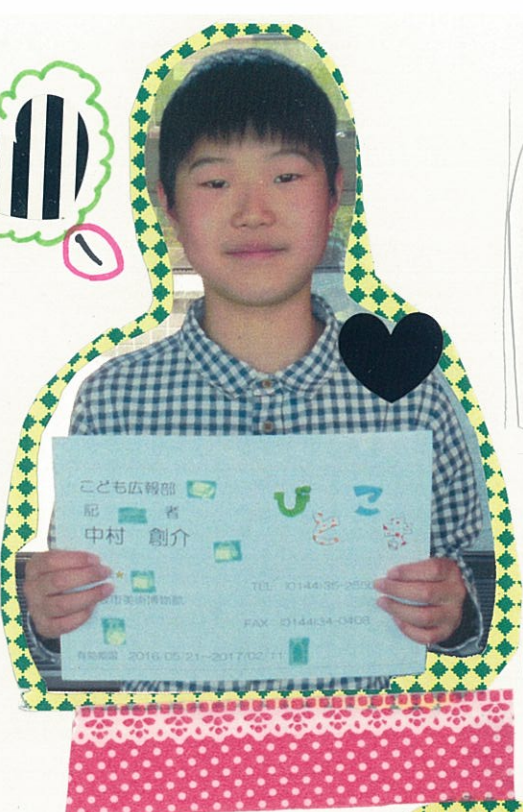 こども広報部
記 者
中村 創介
びとこ
市美術博物館
TEL (0144)35-255
FAX (0144)34-0408
有効期限 2016/05/21~2017/02/11